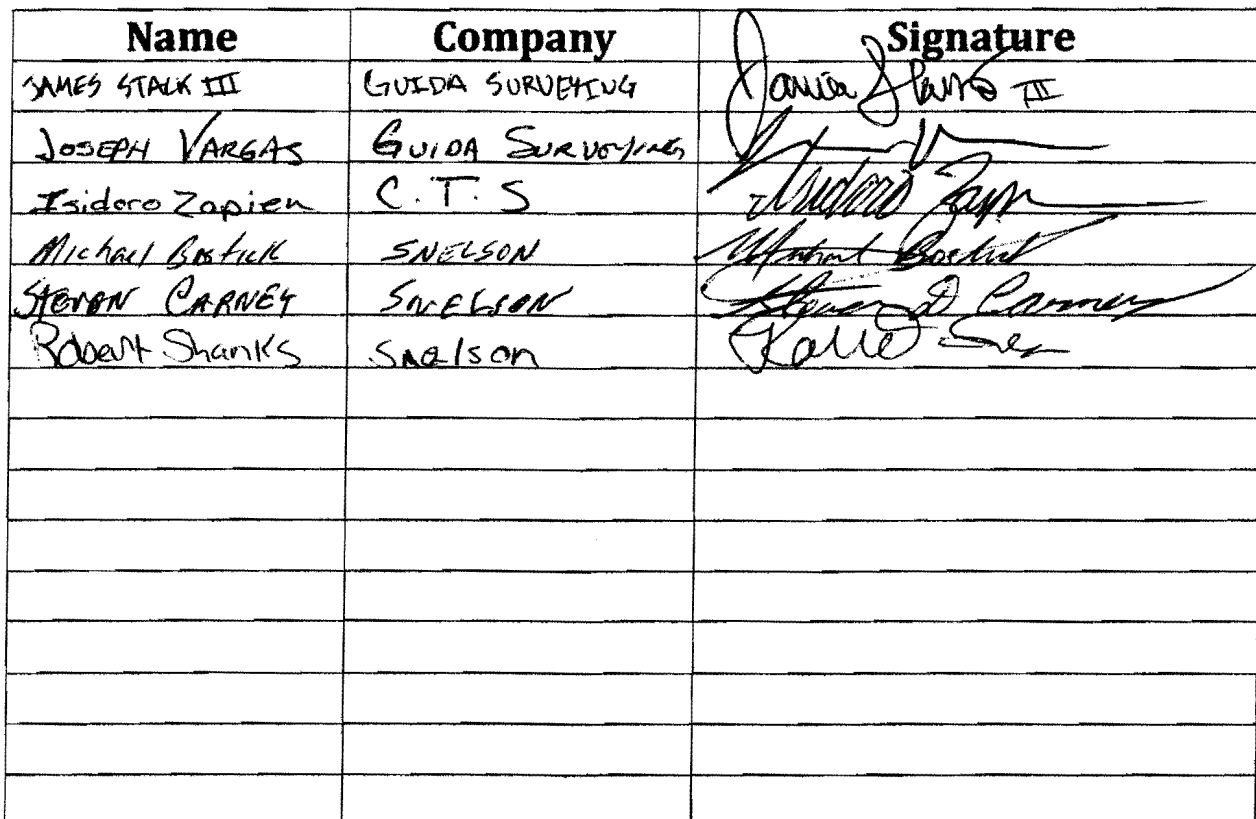 Name Company Signature
JAMES STALK III GUIDA SURVEYING III
JOSEPH VARGAS GUIDA SURVEYING
Isidoro Zapien C.T.S Isidoro
Michael Bostick SNELSON
STEVEN CARNEY SNELSON Steven D Carney
Robert Shanks Snelson